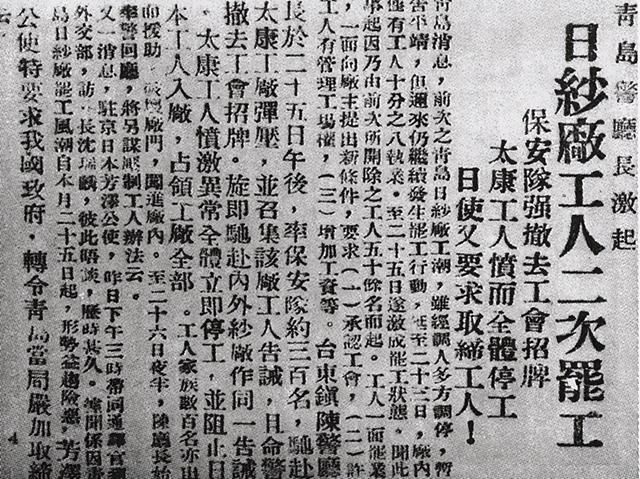 青島警廳長激起
日紗廠工人二次罷工
保安隊强撤去工會招牌
太康工人憤而全體停工
日使又要求取締工人！
青島消息，前次之青島日紗廠工潮，雖經調人多方調停，暫
告平靖，但邇來仍繼續發生罷工行動，甚至二十三日，廠內
僅有工人十分之八執業。至二十五日遂激成罷工狀態。聞此
事起因乃由前次所開除之工人五十餘名而起。工人一面罷業
，一面向廠主提出新條件，要求（一）承認工會，（二）許
工人有管理工場權，（三）增加工資等。台東鎭陳警廳
長於二十五日午後，率保安隊約三百名，馳赴
太康工廠彈壓，並召集該廠工人告誡，且命警
撤去工會招牌。旋即馳赴內外紗廠作同一告誡
。太康工人憤激異常全體立即停工，並阻止日
本工人入廠，占領工廠全部。工人家族數百名亦出
而援助，破壞廠門，闖進廠內。至二十六日夜半，陳廳長始
率警回廳，將另謀制工人辦法云。
又一消息，駐京日本芳澤公使，昨日下午三時帶同通譯官
外交部，訪長沈瑞麟，彼此晤談，歷時甚久。據聞係因青
島日紗廠罷工風潮自本月二十五日起，形勢益趨險惡，芳澤
公使特要求我國政府，轉令青島當局嚴加取締
云。
4